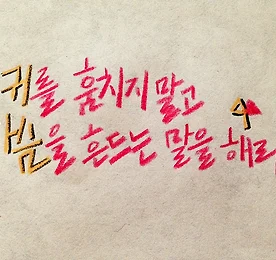 귀를 훔치지 말고
슴을 흔드는 말을 해라